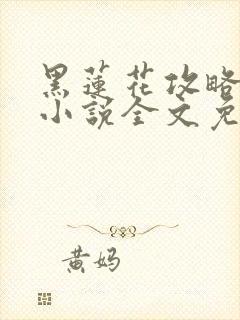 黑蓮花攻略
小說全文免
黄妈